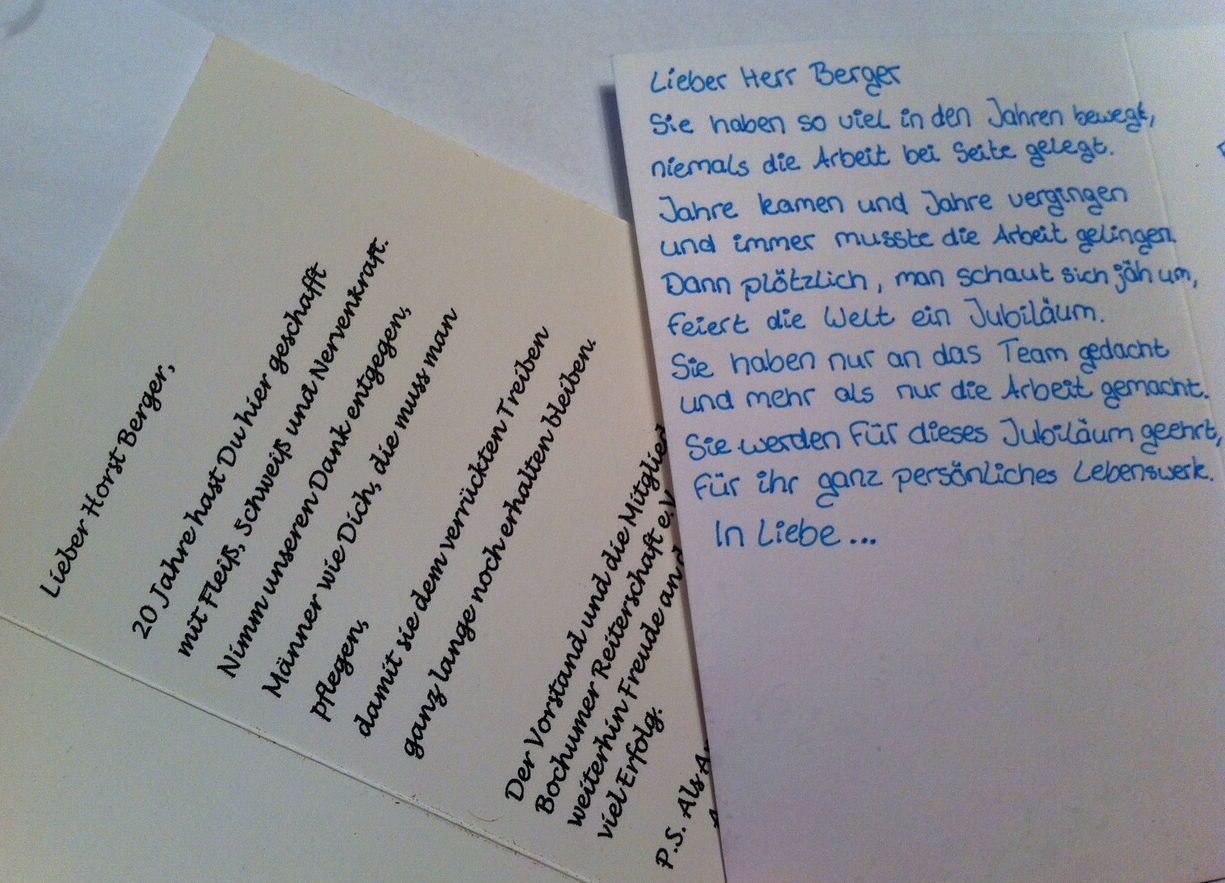 Lieber Horst Berger,
20 Jahre hast Du hier geschafft
mit Fleiß, Schweiß und Nervenkraft.
Nimm unseren Dank entgegen,
Männer wie Dich, die muss man
pflegen,
damit sie dem verrückten Treiben
ganz lange noch erhalten bleiben.
Der Vorstand und die Mitglied
Bochumer Reiterschaft e.V
weiterhin Freude an
viel Erfolg.
P.S. Als
Lieber Herr Berger
Sie haben so viel in den Jahren bewegt,
niemals die Arbeit bei Seite gelegt.
Jahre kamen und Jahre vergingen
und immer musste die Arbeit gelingen.
Dann plötzlich, man schaut sich jäh um,
feiert die Welt ein Jubiläum.
Sie haben nur an das Team gedacht
und mehr als nur die Arbeit gemacht.
Sie werden für dieses Jubiläum geehrt,
für ihr ganz persönliches Lebenswerk.
In Liebe...